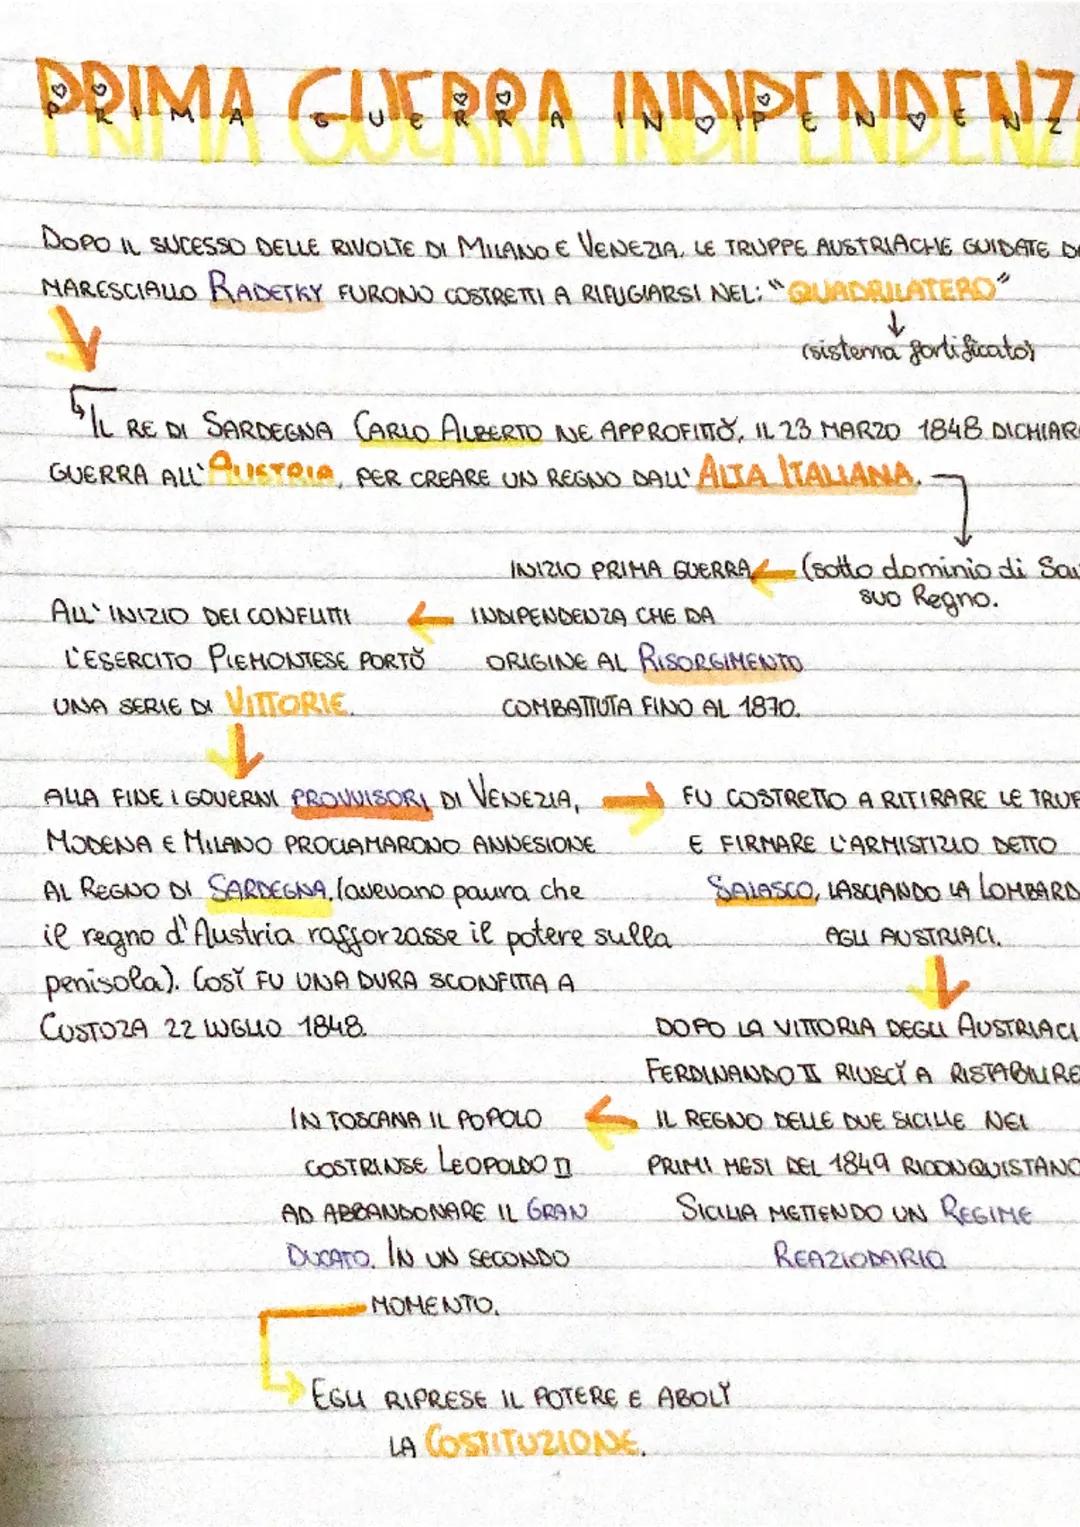 PRIMA GUERRA INDIPENDENZ
DOPO IL SUCESSO DELLE RIVOLTE DI MILANO E VENEZIA, LE TRUPPE AUSTRIACHE GUIDATE
MARESCIALLO RADETKY FURONO COSTRETTI A RIFUGIARSI NEL: "QUADRILATERO"
(sistema fortificato)
IL RE DI SARDEGNA CARLO ALBERTO NE APPROFITTÒ, IL 23 MARZO 1848 DICHIAR
GUERRA ALL'AUSTRIA, PER CREARE UN REGNO DALL'ALTA ITALIANA.
(sotto dominio di
suo Regno.
INIZIO PRIMA GUERRA
INDIPENDENZA CHE DA
ORIGINE AL RISORGIMENTO
COMBATTUTA FINO AL 1870.
ALL'INIZIO DEI CONFLITTI
L'ESERCITO PIEMONTESE PORTÒ
UNA SERIE DI VITTORIE.
ALLA FINE I GOVERNI PROVVISORI DI VENEZIA,
MODENA E MILANO PROCLAMARONO ANNESIONE
AL REGNO DI SARDEGNA. (avevano paura che
il regno d'Austria rafforzasse il potere sulla
penisola). COSÌ FU UNA DURA SCONFITTA A
CUSTOZA 22 LUGLIO 1848.
FU COSTRETTO A RITIRARE LE TRUP
E FIRMARE L'ARMISTIZIO DETTO
SALASCO, LASCIANDO LA LOMBARD
AGLI AUSTRIACI.
DOPO LA VITTORIA DEGLI AUSTRIACI
FERDINANDO II RIUSCÌ A RISTABILIRE
IL REGNO DELLE DUE SICILIE NEI
PRIMI MESI DEL 1849 RICONQUISTANO
SICILIA METTENDO UN REGIME
REAZIODARIO
IN TOSCANA IL POPOLO
COSTRINSE LEOPOLDO II
AD ABBANDONARE IL GRAN
DUCATO. IN UN SECONDO
MOMENTO.
EGLI RIPRESE IL POTERE E ABOLÌ
LA COSTITUZIONE.